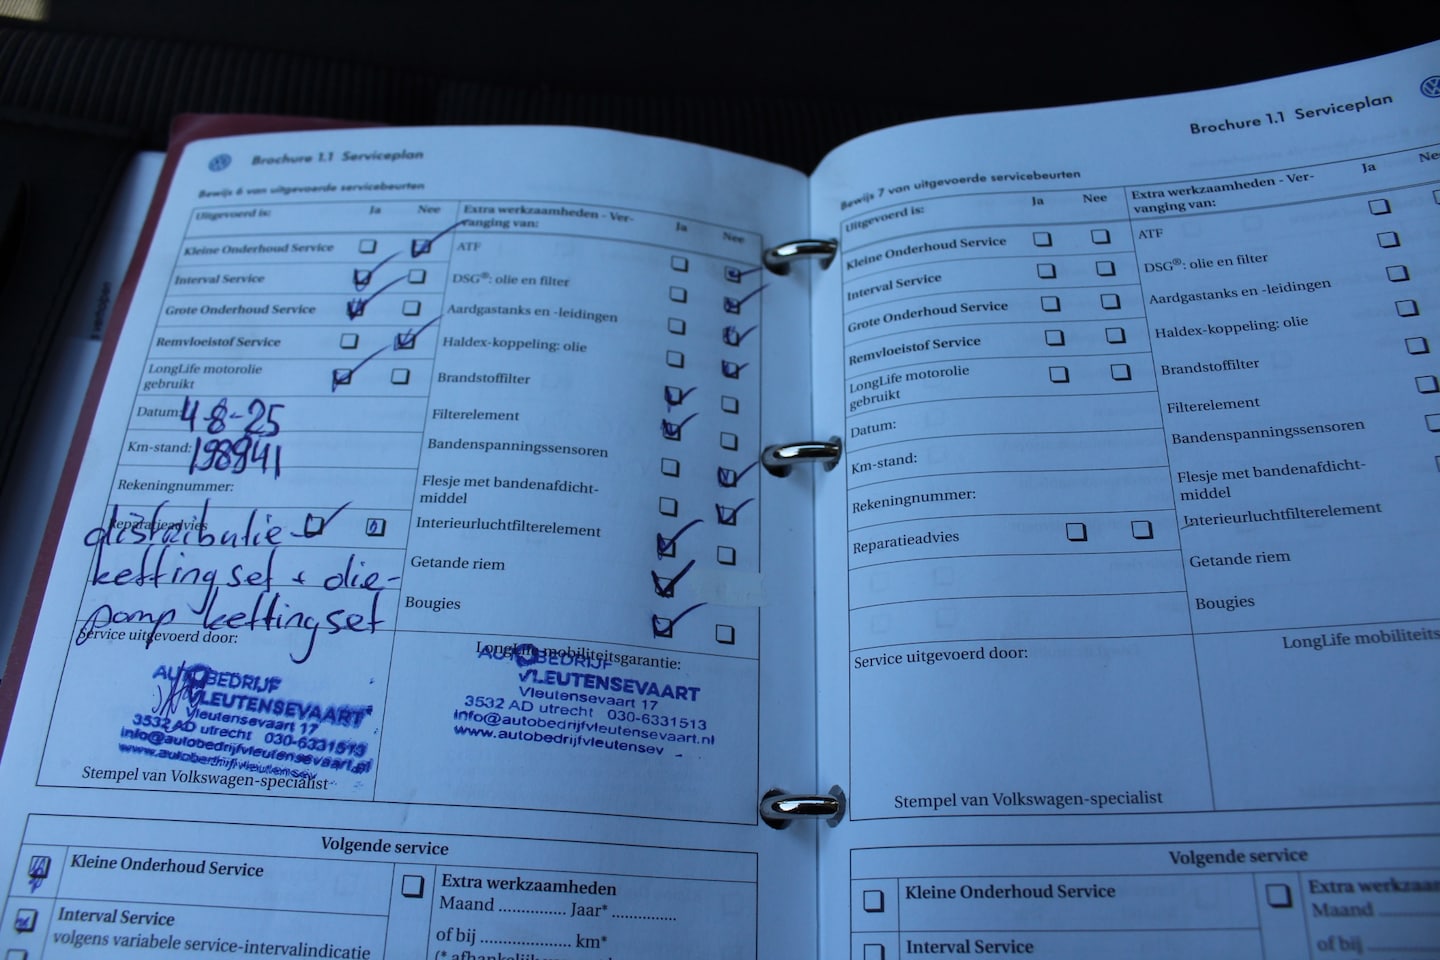 Brochure 1.1 Serviceplan
Bewijs 6 van uitgevoerde servicebeurten
Uitgevoerd is: Ja Nee
Kleine Onderhoud Service
Interval Service
Grote Onderhoud Service
Remvloeistof Service
LongLife motorolie
gebruikt
Datum: 4-8-25
Km-stand: 198941
Rekeningnummer:
Reparatieadvies
distributie
ketting set + olie-
pomp kettingset
Extra werkzaamheden - Ver-
vanging van: Ja Nee
ATF
DSG®: olie en filter
Aardgastanks en -leidingen
Haldex-koppeling: olie
Brandstoffilter
Filterelement
Bandenspanningssensoren
Flesje met bandenafdicht-
middel
Interieurluchtfilterelement
Getande riem
Bougies
Service uitgevoerd door:
AUTOBEDRIJF
VLEUTENSEVAART
Vleutensevaart 17
3532 AD utrecht 030-6331513
info@autobedrijfvleutensevaart.nl
www.autobedrijfvleutensev
Stempel van Volkswagen-specialist
LongLife mobiliteitsgarantie:
AUTOBEDRIJF
VLEUTENSEVAART
Vleutensevaart 17
3532 AD utrecht 030-6331513
info@autobedrijfvleutensevaart.nl
www.autobedrijfvleutensev
Volgende service
Kleine Onderhoud Service
Interval Service
volgens variabele service-intervalindicatie
Extra werkzaamheden
Maand .............. Jaar* ..............
of bij ................... km*
Brochure 1.1 Serviceplan
Bewijs 7 van uitgevoerde servicebeurten
Uitgevoerd is: Ja Nee
Kleine Onderhoud Service
Interval Service
Grote Onderhoud Service
Remvloeistof Service
LongLife motorolie
gebruikt
Datum:
Km-stand:
Rekeningnummer:
Reparatieadvies
Extra werkzaamheden - Ver-
vanging van: Ja
ATF
DSG®: olie en filter
Aardgastanks en -leidingen
Haldex-koppeling: olie
Brandstoffilter
Filterelement
Bandenspanningssensoren
Flesje met bandenafdicht-
middel
Interieurluchtfilterelement
Getande riem
Bougies
Service uitgevoerd door:
Stempel van Volkswagen-specialist
LongLife
Volgende service
Kleine Onderhoud Service
Interval Service
Extra
Maand
of bij